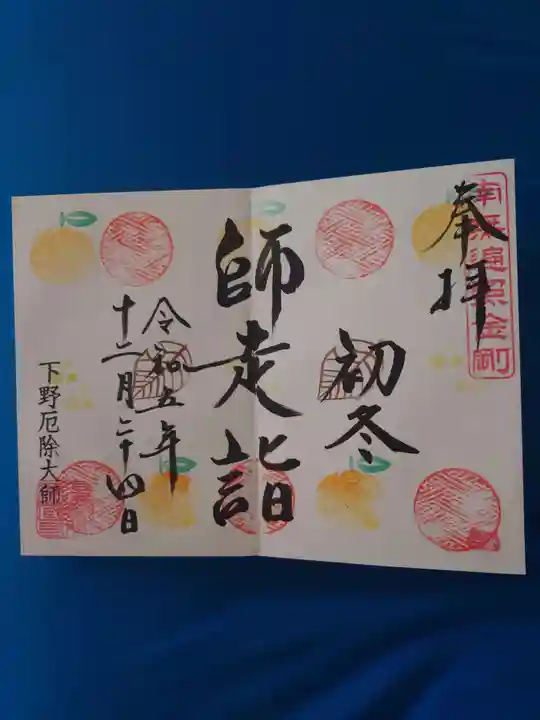 南無遍照金剛
奉拝
初冬
師走詣
令和五年
十二月二十四日
下野厄除大師